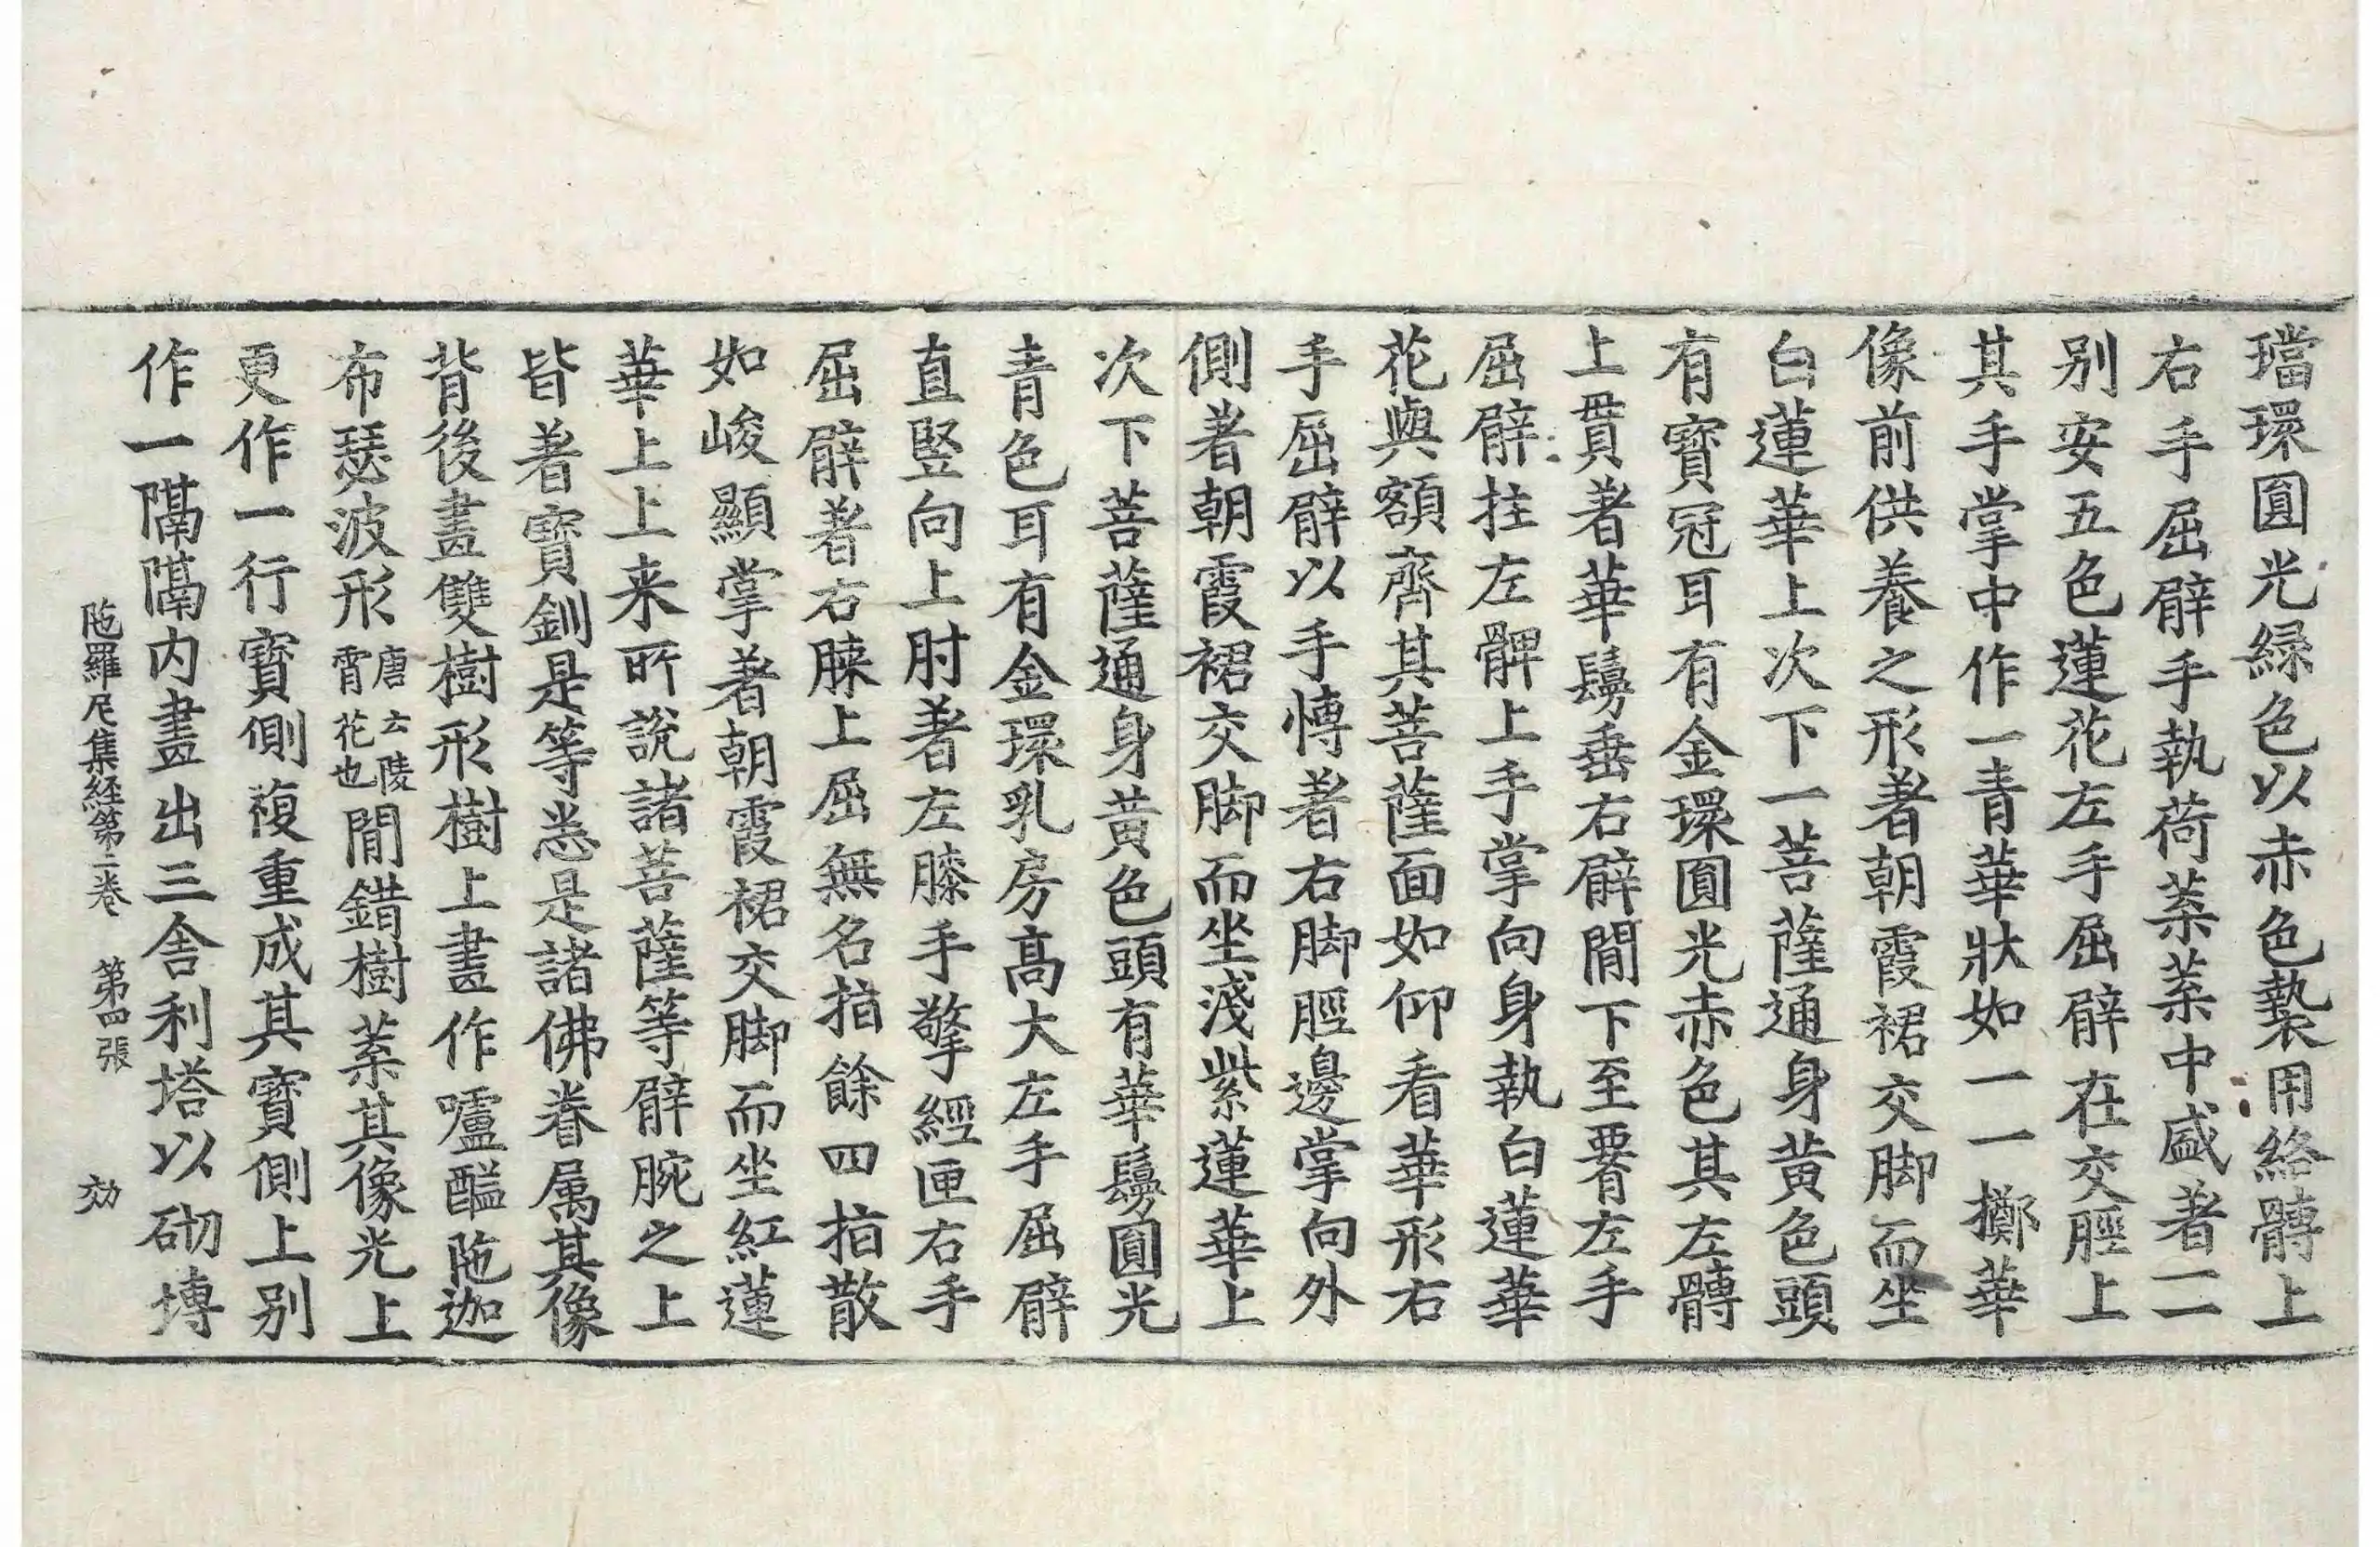 璫環圓光緑色以赤色褺用絡髆上
右手屈臂手執荷葉葉中盛著二
别安五色蓮花左手屈臂在交脛上
其手掌中作一青華狀如一一擲華
像前供養之形著朝霞裙交脚而坐
白蓮華上次下一菩薩通身黄色頭
有寶冠耳有金環圓光赤色其左髆
上貫著華鬘垂右臂間下至署左手
屈臂拄左髀上手掌向身執白蓮華
花與額齊其菩薩面如仰看華形右
手屈臂以手愽著右脚脛邊掌向外
側著朝霞裙交脚而坐淺紫蓮華上
次下菩薩通身黄色頭有華鬘圓光
青色耳有金環乳房髙大左手屈臂
直竪向上肘著左膝手擎經匣右手
屈臂著右䏶上屈無名指餘四指散
如峻顯掌著朝霞裙交脚而坐紅蓮
華上上来所說諸菩薩等臂腕之上
皆著寶釧是等悉是諸佛眷属其像
背後畫雙樹形樹上畫作嚧醓陁迦
布瑟波形唐云陵霄花也間錯樹葉其像光上
更作一行寶側複重成其寶側上别
作一隔隔内畫出三舎利塔以砌塼
陁羅尼集経第二卷 第四張 効